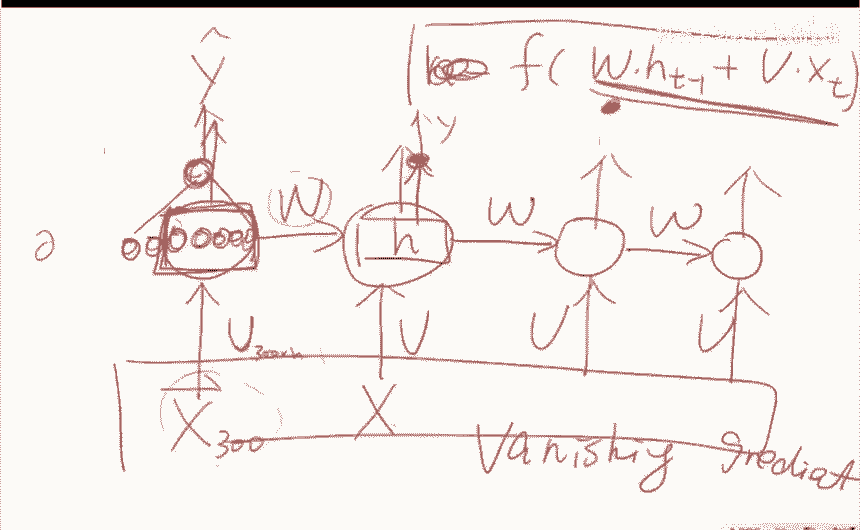 f( W·h_{t-1} + U·X_t)
Ŷ
y
W
h
W
W
U_{300×h}
U
U
U
X_{300}
X
Vanishiy Grediat